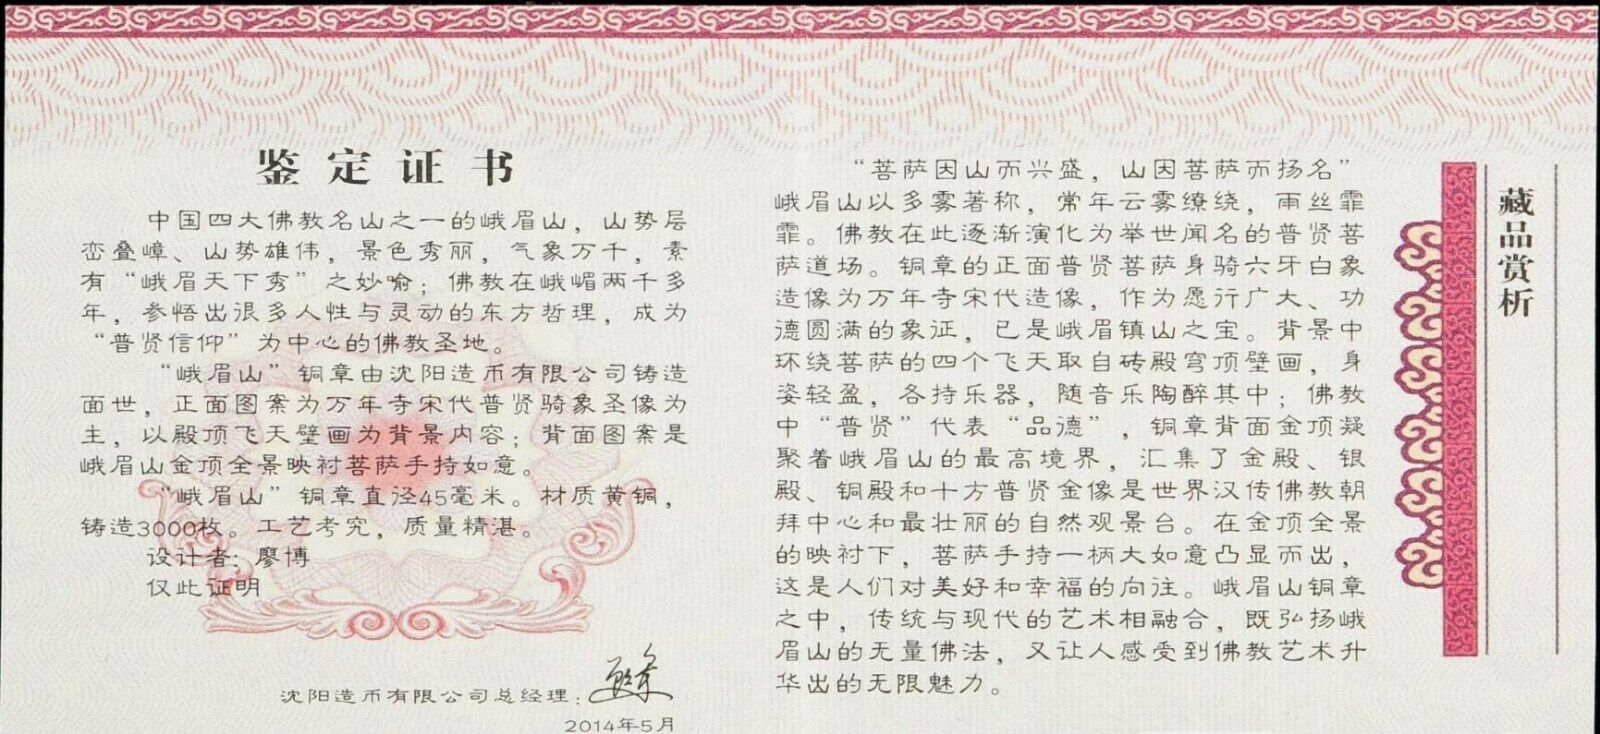 鉴定证书
中国四大佛教名山之一的峨眉山，山势层
峦叠嶂、山势雄伟，景色秀丽，气象万千，素
有“峨眉天下秀”之妙喻；佛教在峨嵋两千多
年，参悟出很多人性与灵动的东方哲理，成为
“普贤信仰”为中心的佛教圣地。
“峨眉山”铜章由沈阳造币有限公司铸造
面世，正面图案为万年寺宋代普贤骑象圣像为
主，以殿顶飞天壁画为背景内容；背面图案是
峨眉山金顶全景映衬菩萨手持如意。
“峨眉山”铜章直径45毫米。材质黄铜，
铸造3000枚。工艺考究，质量精湛。
设计者：廖博
仅此证明
沈阳造币有限公司总经理：
2014年5月
“菩萨因山而兴盛，山因菩萨而扬名”
峨眉山以多雾著称，常年云雾缭绕，雨丝霏
霏。佛教在此逐渐演化为举世闻名的普贤菩
萨道场。铜章的正面普贤菩萨身骑六牙白象
造像为万年寺宋代造像，作为愿行广大、功
德圆满的象征，已是峨眉镇山之宝。背景中
环绕菩萨的四个飞天取自砖殿穹顶壁画，身
姿轻盈，各持乐器，随音乐陶醉其中；佛教
中“普贤”代表“品德”，铜章背面金顶凝
聚着峨眉山的最高境界，汇集了金殿、银
殿、铜殿和十方普贤金像是世界汉传佛教朝
拜中心和最壮丽的自然观景台。在金顶全景
的映衬下，菩萨手持一柄大如意凸显而出，
这是人们对美好和幸福的向往。峨眉山铜章
之中，传统与现代的艺术相融合，既弘扬峨
眉山的无量佛法，又让人感受到佛教艺术升
华出的无限魅力。
藏品赏析